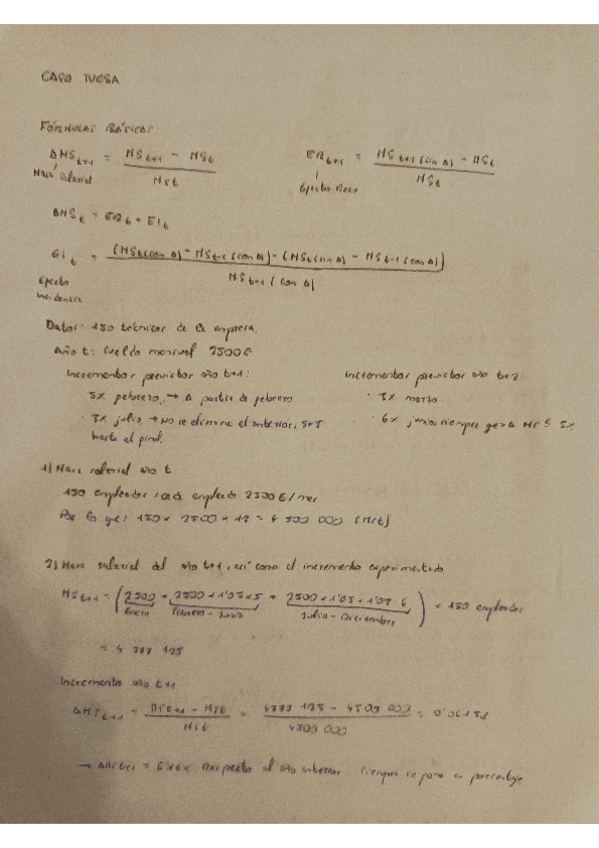 CASO TUCSA
FÓRMULAS BÁSICAS
ΔMS t+1 = (MS t+1 - MS t) / MS t
Masa salarial
ER t+1 = (MS t+1 (sin Δ) - MS t) / MS t
Efecto
ΔMS t = ER t + EI t
EI t = ((MS t (con Δ) - MS t-1 (con Δ)) - (MS t (sin Δ) - MS t-1 (con Δ))) / MS t-1 (con Δ)
Efecto
incidencia
Datos: 150 técnicos de la empresa.
Año t: sueldo mensual 2500€
Incrementos previstos año t+1:
5% febrero, → A partir de febrero
· 3% julio, → No se elimina el anterior,
hasta el final.
Incrementos previstos año t+2:
· 3% marzo
· 6% junio, siempre que Δ MS ≤ 5%
1) Masa salarial año t
150 empleados, cada empleado 2500€/mes
Por lo que: 150 x 2500 x 12 = 4 500 000 (MSt)
2) Masa salarial del año t+1, así como el incremento experimentado
MS t+1 = (2500 + 2500 x 1'05 x 5 + 2500 x 1'05 x 1'03 6) x 150 empleados
Enero Febrero - Junio Julio - Diciembre
= 4 777 125
Incremento año t+1
ΔMS t+1 = (MS t+1 - MS t) / MS t = (4777 125 - 4500 000) / 4500 000 = 0'06158
→ ΔMS t+1 = 6'16% Respecto al año anterior Siempre se pone en porcentaje